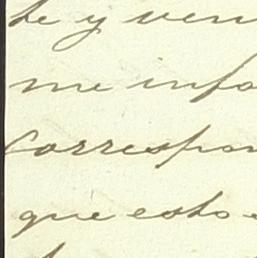 te y ven
me info
correspon
que esto